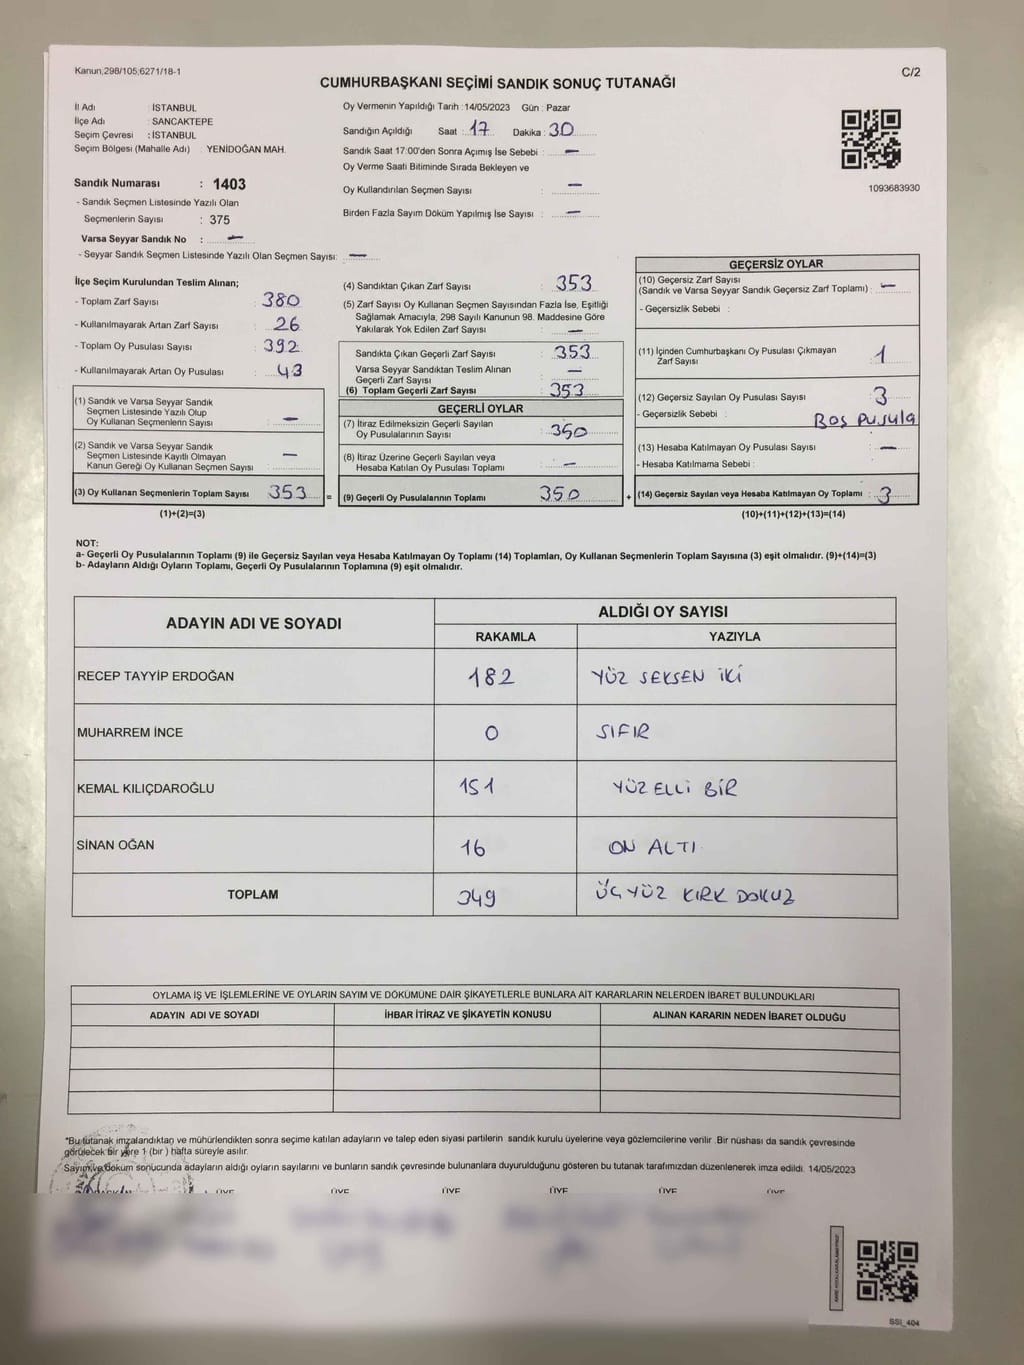 Kanun;298/105;6271/18-1
C/2
CUMHURBAŞKANI SEÇİMİ SANDIK SONUÇ TUTANAĞI
İl Adı : İSTANBUL
İlçe Adı : SANCAKTEPE
Seçim Çevresi : İSTANBUL
Seçim Bölgesi (Mahalle Adı) : YENİDOĞAN MAH.
Sandık Numarası : 1403
- Sandık Seçmen Listesinde Yazılı Olan
Seçmenlerin Sayısı : 375
Varsa Seyyar Sandık No : —
- Seyyar Sandık Seçmen Listesinde Yazılı Olan Seçmen Sayısı: —
Oy Vermenin Yapıldığı Tarih :14/05/2023 Gün : Pazar
Sandığın Açıldığı Saat : 17 Dakika : 30
Sandık Saat 17:00'den Sonra Açımış İse Sebebi : —
Oy Verme Saati Bitiminde Sırada Bekleyen ve
Oy Kullandırılan Seçmen Sayısı : —
Birden Fazla Sayım Döküm Yapılmış İse Sayısı : —
1093683930
İlçe Seçim Kurulundan Teslim Alınan;
- Toplam Zarf Sayısı : 380
- Kullanılmayarak Artan Zarf Sayısı : 26
- Toplam Oy Pusulası Sayısı : 392
- Kullanılmayarak Artan Oy Pusulası : 43
(1) Sandık ve Varsa Seyyar Sandık
Seçmen Listesinde Yazılı Olup
Oy Kullanan Seçmenlerin Sayısı : —
(2) Sandık ve Varsa Seyyar Sandık
Seçmen Listesinde Kayıtlı Olmayan
Kanun Gereği Oy Kullanan Seçmen Sayısı : —
(3) Oy Kullanan Seçmenlerin Toplam Sayısı : 353
(1)+(2)=(3)
(4) Sandıktan Çıkan Zarf Sayısı : 353
(5) Zarf Sayısı Oy Kullanan Seçmen Sayısından Fazla İse, Eşitliği
Sağlamak Amacıyla, 298 Sayılı Kanunun 98. Maddesine Göre
Yakılarak Yok Edilen Zarf Sayısı : —
Sandıkta Çıkan Geçerli Zarf Sayısı : 353
Varsa Seyyar Sandıktan Teslim Alınan
Geçerli Zarf Sayısı : —
(6) Toplam Geçerli Zarf Sayısı : 353
GEÇERLİ OYLAR
(7) İtiraz Edilmeksizin Geçerli Sayılan
Oy Pusulalarının Sayısı : 350
(8) İtiraz Üzerine Geçerli Sayılan veya
Hesaba Katılan Oy Pusulası Toplamı : —
= (9) Geçerli Oy Pusulalarının Toplamı : 350
GEÇERSİZ OYLAR
(10) Geçersiz Zarf Sayısı
(Sandık ve Varsa Seyyar Sandık Geçersiz Zarf Toplamı) : —
- Geçersizlik Sebebi :
(11) İçinden Cumhurbaşkanı Oy Pusulası Çıkmayan
Zarf Sayısı : 1
(12) Geçersiz Sayılan Oy Pusulası Sayısı : 3
- Geçersizlik Sebebi : Boş Pusula
(13) Hesaba Katılmayan Oy Pusulası Sayısı : —
- Hesaba Katılmama Sebebi :
+ (14) Geçersiz Sayılan veya Hesaba Katılmayan Oy Toplamı : 3
(10)+(11)+(12)+(13)=(14)
NOT:
a- Geçerli Oy Pusulalarının Toplamı (9) ile Geçersiz Sayılan veya Hesaba Katılmayan Oy Toplamı (14) Toplamları, Oy Kullanan Seçmenlerin Toplam Sayısına (3) eşit olmalıdır. (9)+(14)=(3)
b- Adayların Aldığı Oyların Toplamı, Geçerli Oy Pusulalarının Toplamına (9) eşit olmalıdır.
ADAYIN ADI VE SOYADI
ALDIĞI OY SAYISI
RAKAMLA YAZIYLA
RECEP TAYYİP ERDOĞAN 182 YÜZ SEKSEN İKİ
MUHARREM İNCE 0 SIFIR
KEMAL KILIÇDAROĞLU 151 YÜZ ELLİ BİR
SİNAN OĞAN 16 ON ALTI
TOPLAM 349 ÜÇYÜZ KIRK DOKUZ
OYLAMA İŞ VE İŞLEMLERİNE VE OYLARIN SAYIM VE DÖKÜMÜNE DAİR ŞİKAYETLERLE BUNLARA AİT KARARLARIN NELERDEN İBARET BULUNDUKLARI
ADAYIN ADI VE SOYADI İHBAR İTİRAZ VE ŞİKAYETİN KONUSU ALINAN KARARIN NEDEN İBARET OLDUĞU
*Bu tutanak imzalandıktan ve mühürlendikten sonra seçime katılan adayların ve talep eden siyasi partilerin sandık kurulu üyelerine veya gözlemcilerine verilir. Bir nüshası da sandık çevresinde
görülecek bir yere 1 (bir ) hafta süreyle asılır.
Sayım ve döküm sonucunda adayların aldığı oyların sayılarını ve bunların sandık çevresinde bulunanlara duyurulduğunu gösteren bu tutanak tarafımızdan düzenlenerek imza edildi. 14/05/2023
ÜYE ÜYE ÜYE ÜYE ÜYE ÜYE
SSI_404